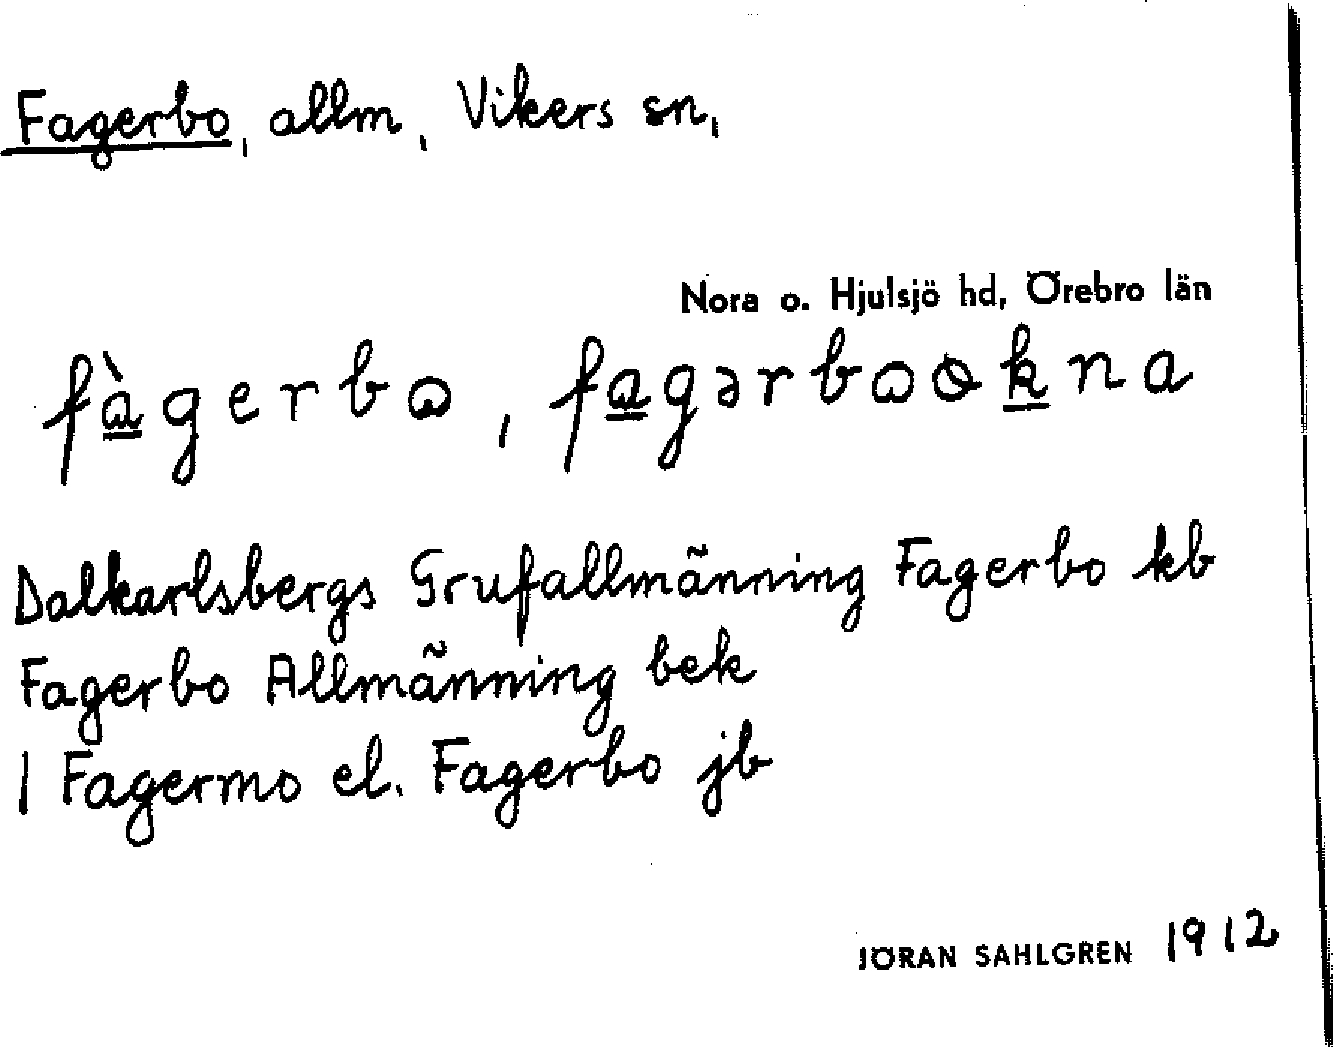 Fagerbo, allm, Vikers sn,
Nora o. Hjulsjö hd, Örebro län
fàgerbɷ, fagərbɷokna
Dalkarlsbergs Grufallmänning Fagerbo kb
Fagerbo Allmänning bek
1 Fagermo el. Fagerbo jb
JÖRAN SAHLGREN 1912